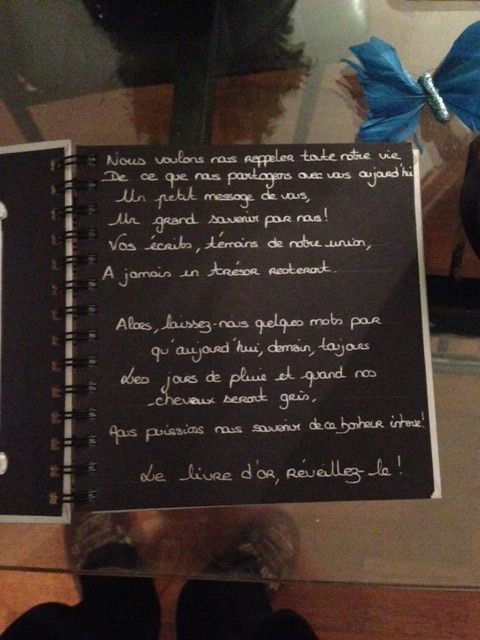 Nous voulons nous rappeler toute notre vie
De ce que nous partageons avec vous aujourd'hui
Un petit message de vous,
Un grand souvenir pour nous!
Vos écrits, témoins de notre union,
A jamais un trésor resteront.
Alors, laissez-nous quelques mots pour
qu'aujourd'hui, demain, toujours
Les jours de pluie et quand nos
cheveux seront gris,
Nous puissions nous souvenir de ce bonheur intense!
Le livre d'or, réveillez-le!